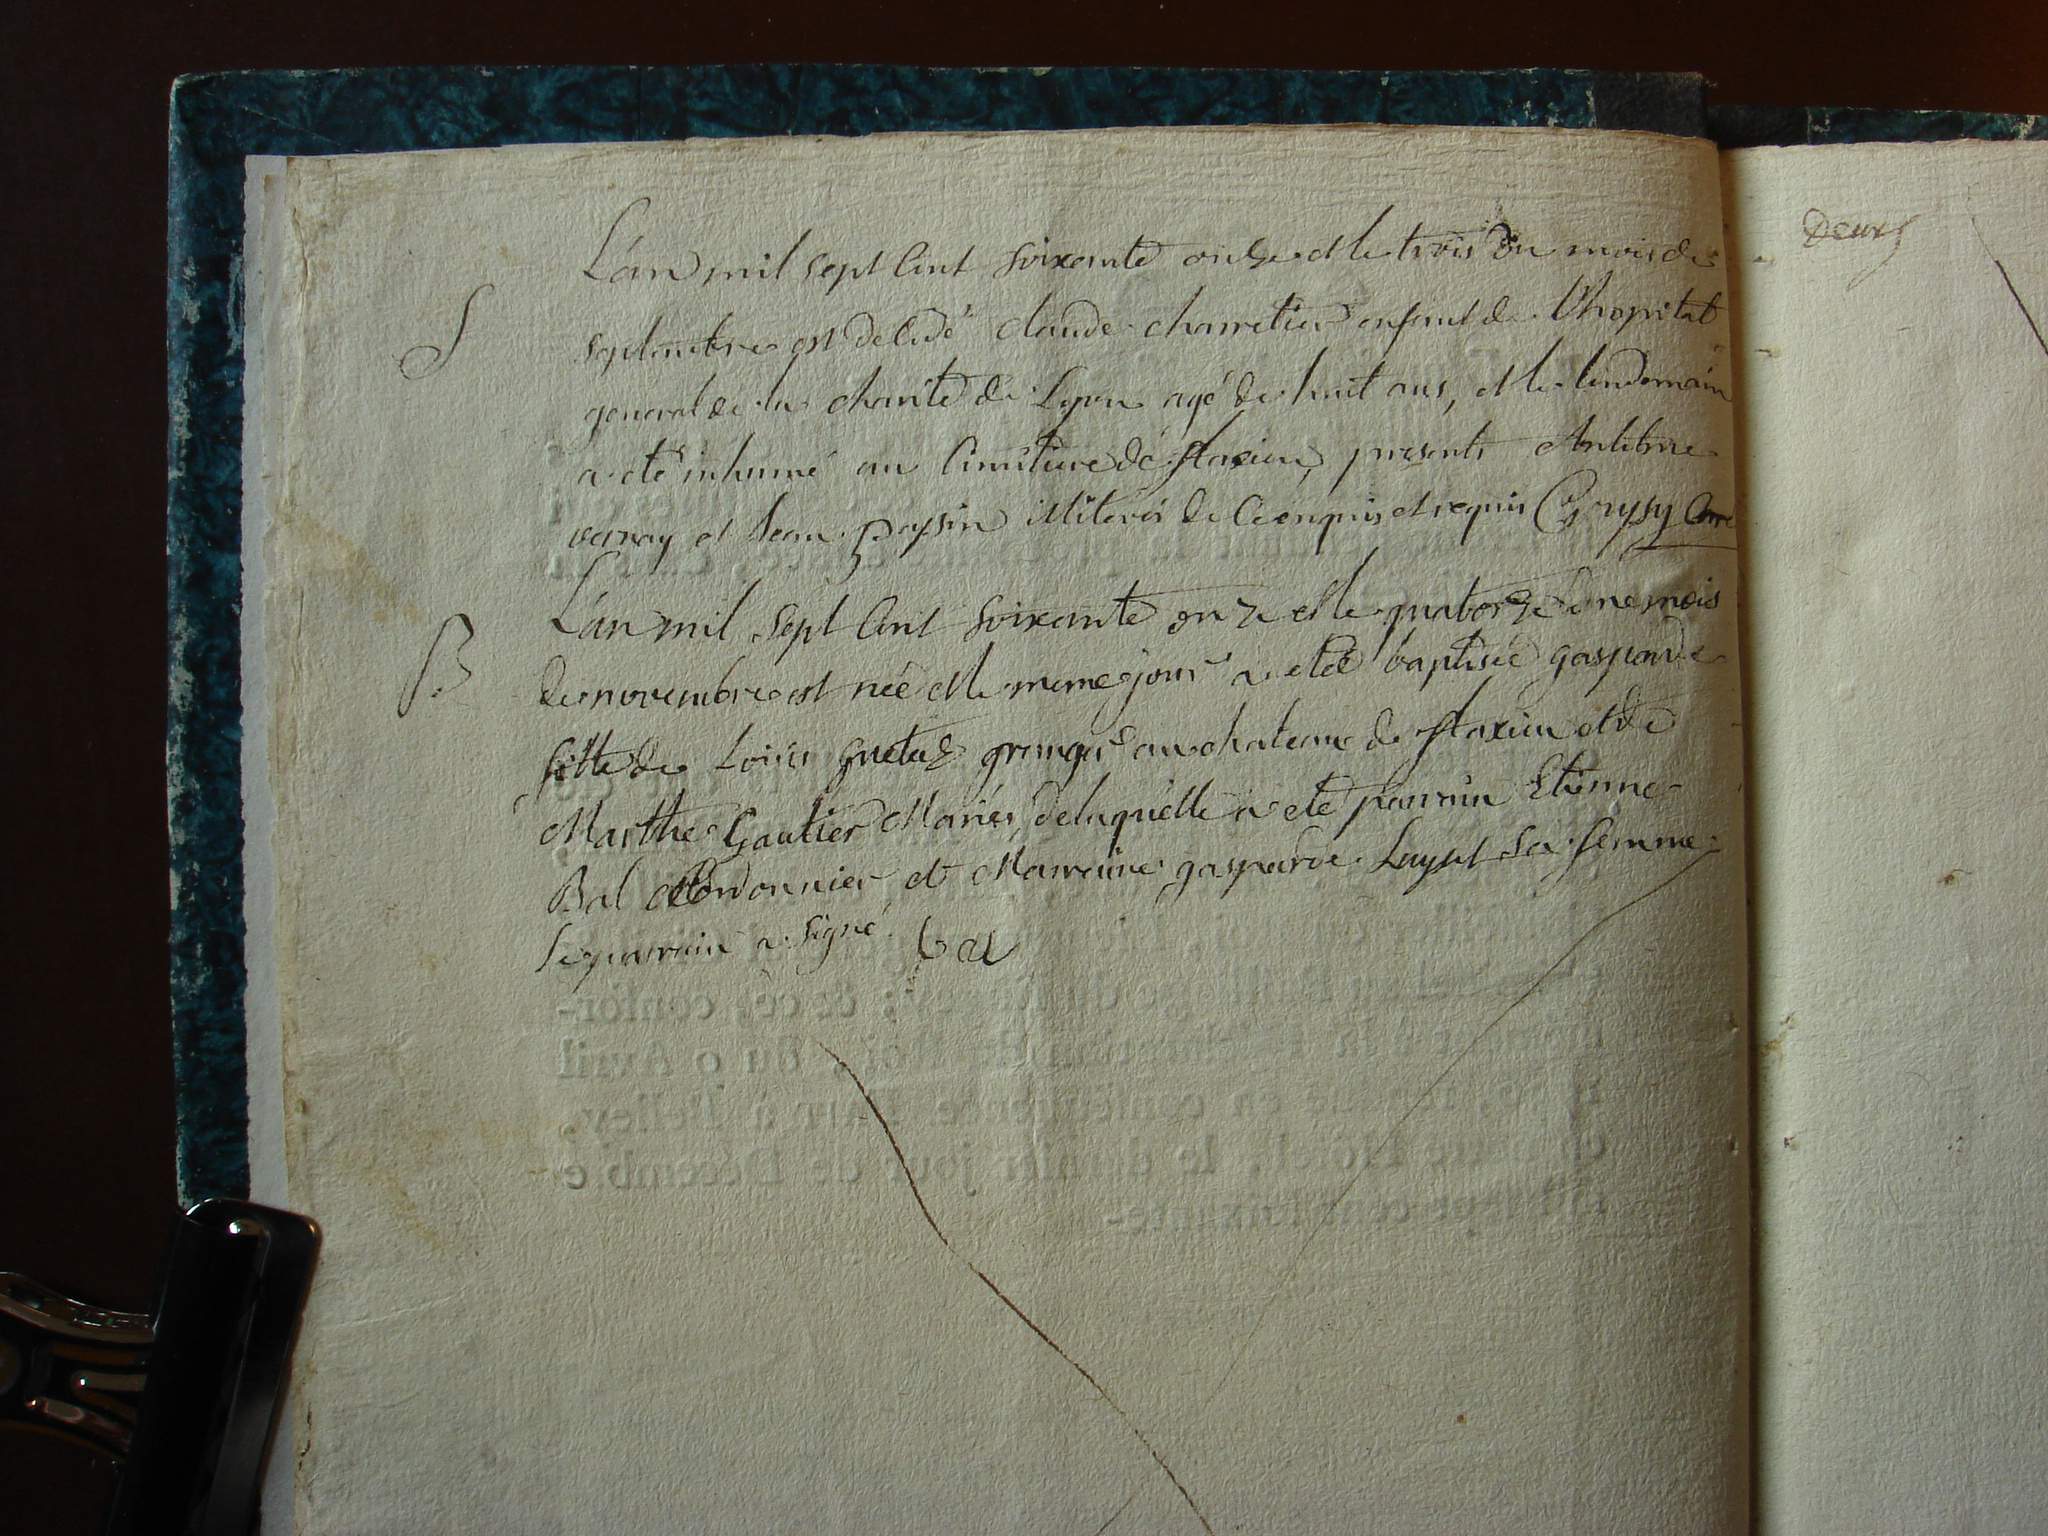 L'an mil sept Cent soixante onze et le trois du mois de
S
septembre est decedé Claude charretier enfant de L'hopital
general de la charité de Lyon agé de huit ans, et le lendemain
a eté inhumé au Cimitiere de flaxieu, presents Antelme
vernay et Jean paysin illiterés de ce enquis et requis Grysy Curé
L'an mil sept Cent soixante onze et le quatorze du mois
B
de novembre est née et le meme jour a eté baptisée gasparde
fille de Louis guetaz granger au chateau de flaxieu et de
Marthe Gautier Mariés, de laquelle a eté parrain Etienne
Bal Cordonnier et Marraine gasparde Luyset sa femme
le parrain a signé. bal
deux